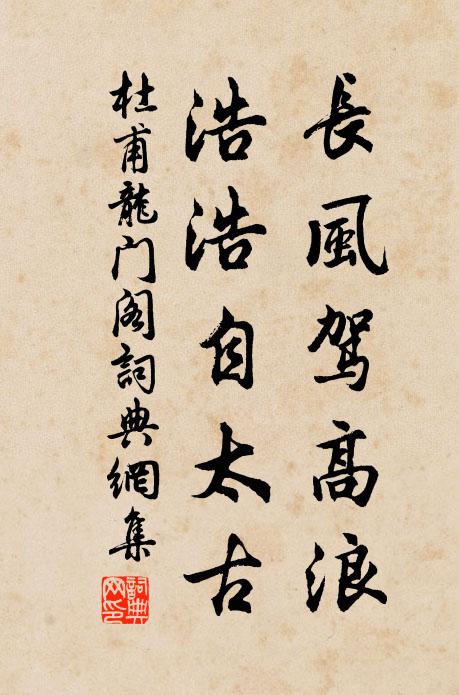 長風駕高浪
浩浩自太古
杜甫龍门阁詞典網集
詞典网印